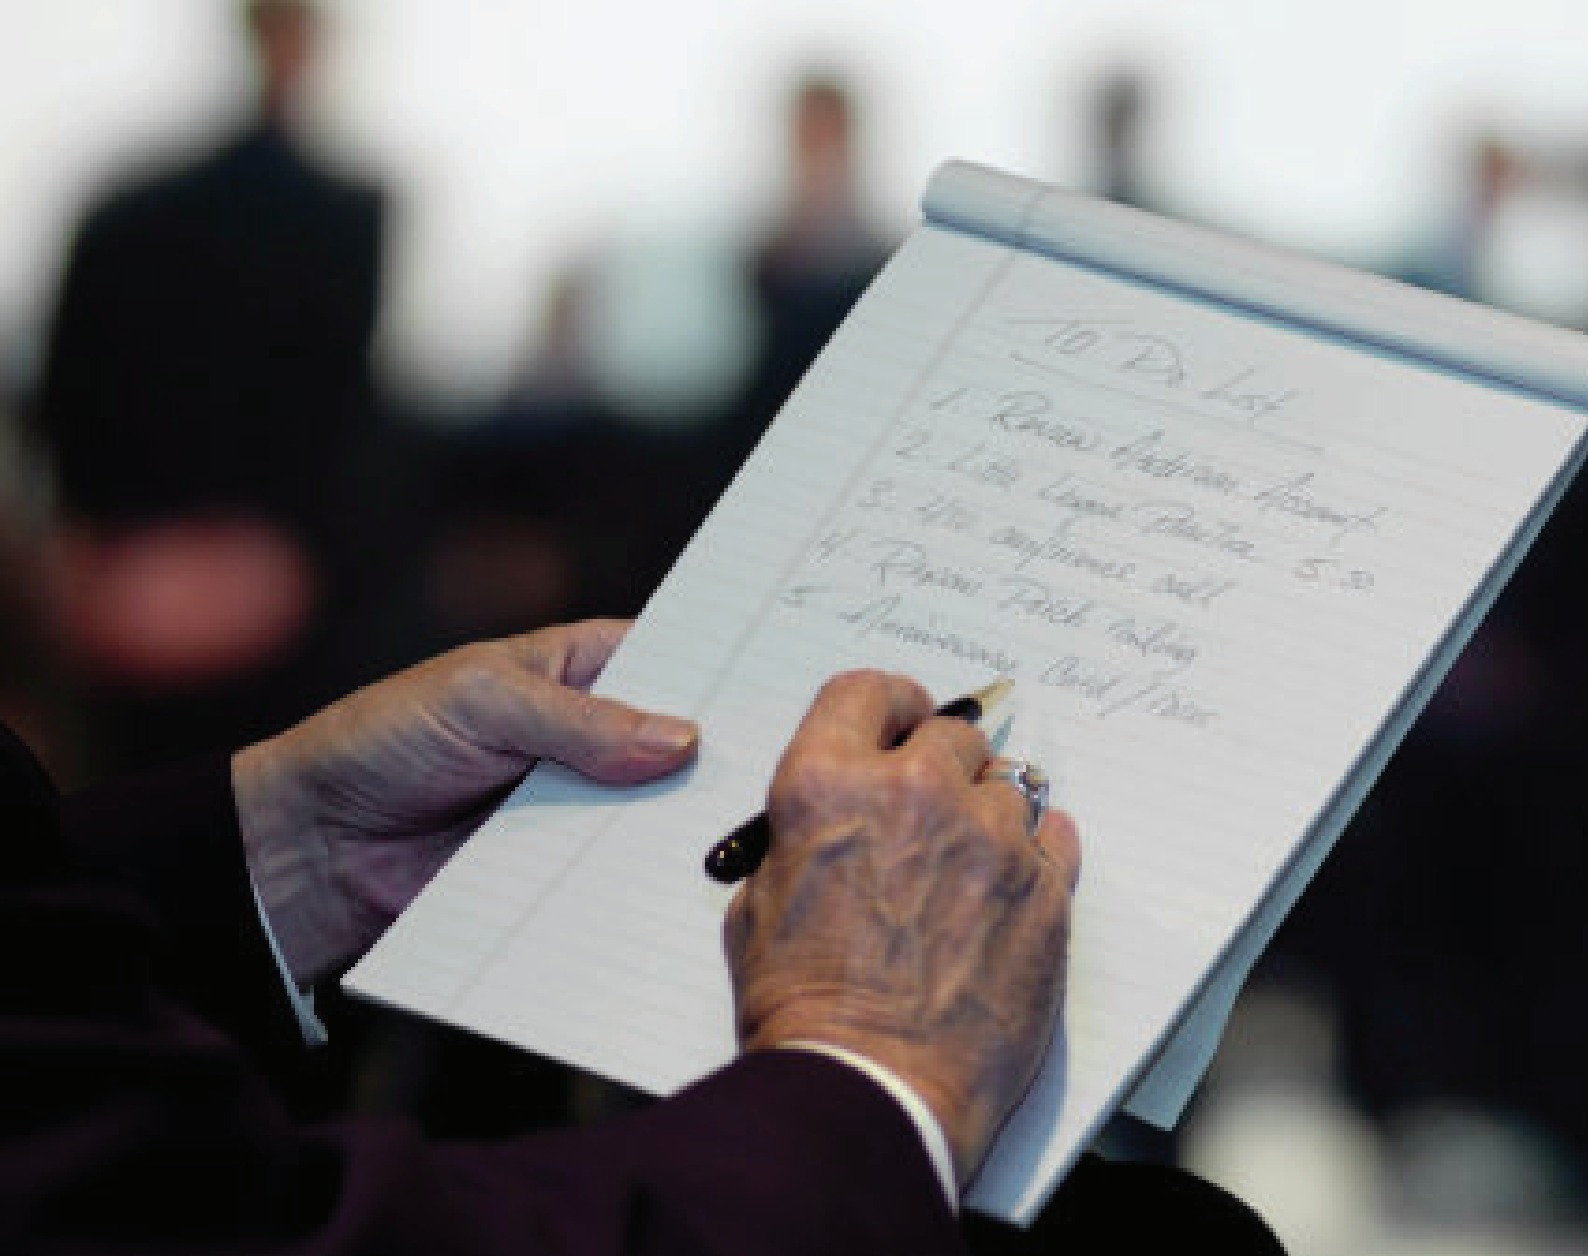 To Do List
1. Review Account
2. Little League Practice 5:30
3. 4:00 conference call
4. Repair Porch railing
5. Anniversary Card /